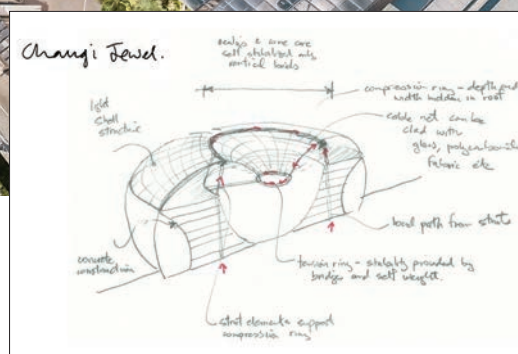 Changi Jewel.
self stabilized
vertical loads
compression ring - depth and
width hidden in roof
cable net can be
clad with
glass, polycarbonate
fabric etc
light
shell
structure
load path from struts
concrete
construction
tension ring - stability provided by
bridge and self weight.
strut elements support
compression ring